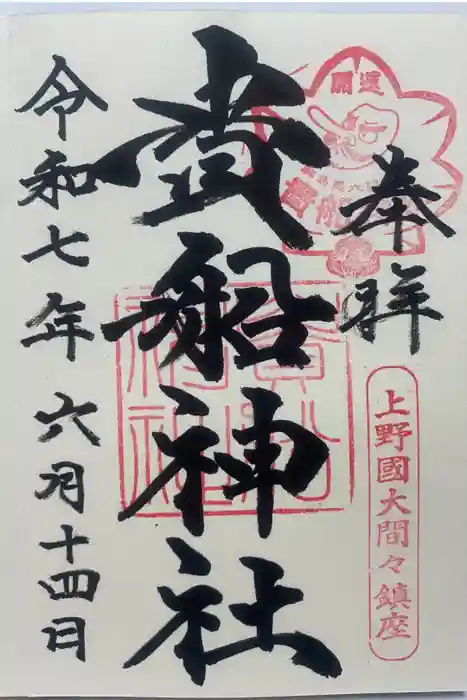 開運
奉拝
上野國大間々鎮座
貴船神社
令和七年 六月十四日